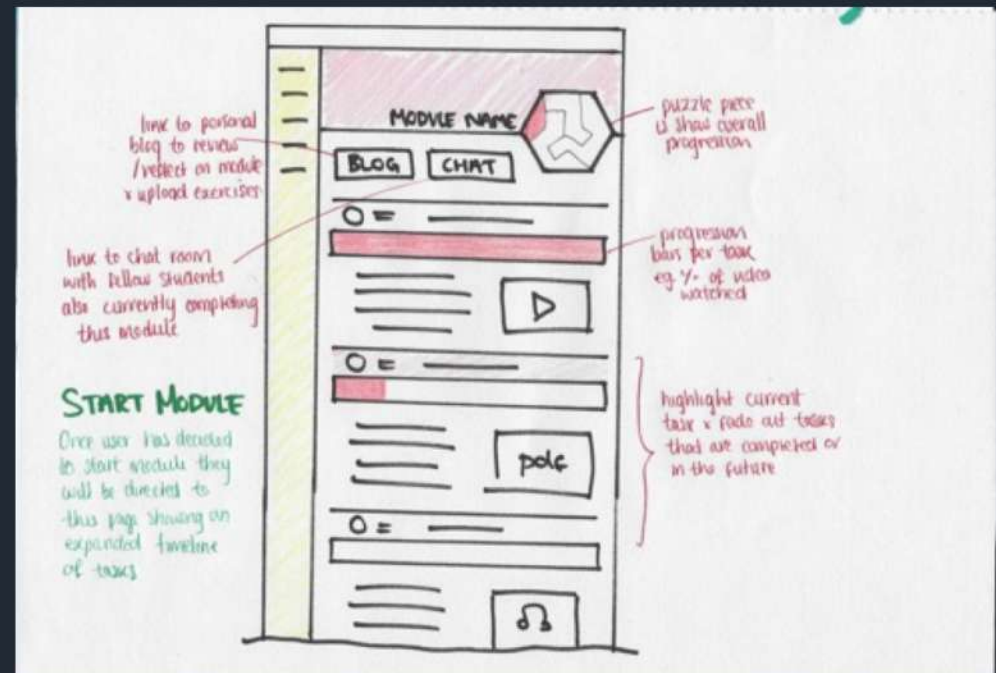 MODULE NAME
BLOG
CHAT
pdf
link to personal
blog to review
/reflect on module
& upload exercises
link to chat room
with fellow students
also currently completing
this module
START MODULE
Once user has decided
to start module they
will be directed to
this page showing an
expanded timeline
of tasks
puzzle piece
to show overall
progression
progression
bars per task
eg % of video
watched
highlight current
task & fade out tasks
that are completed or
in the future